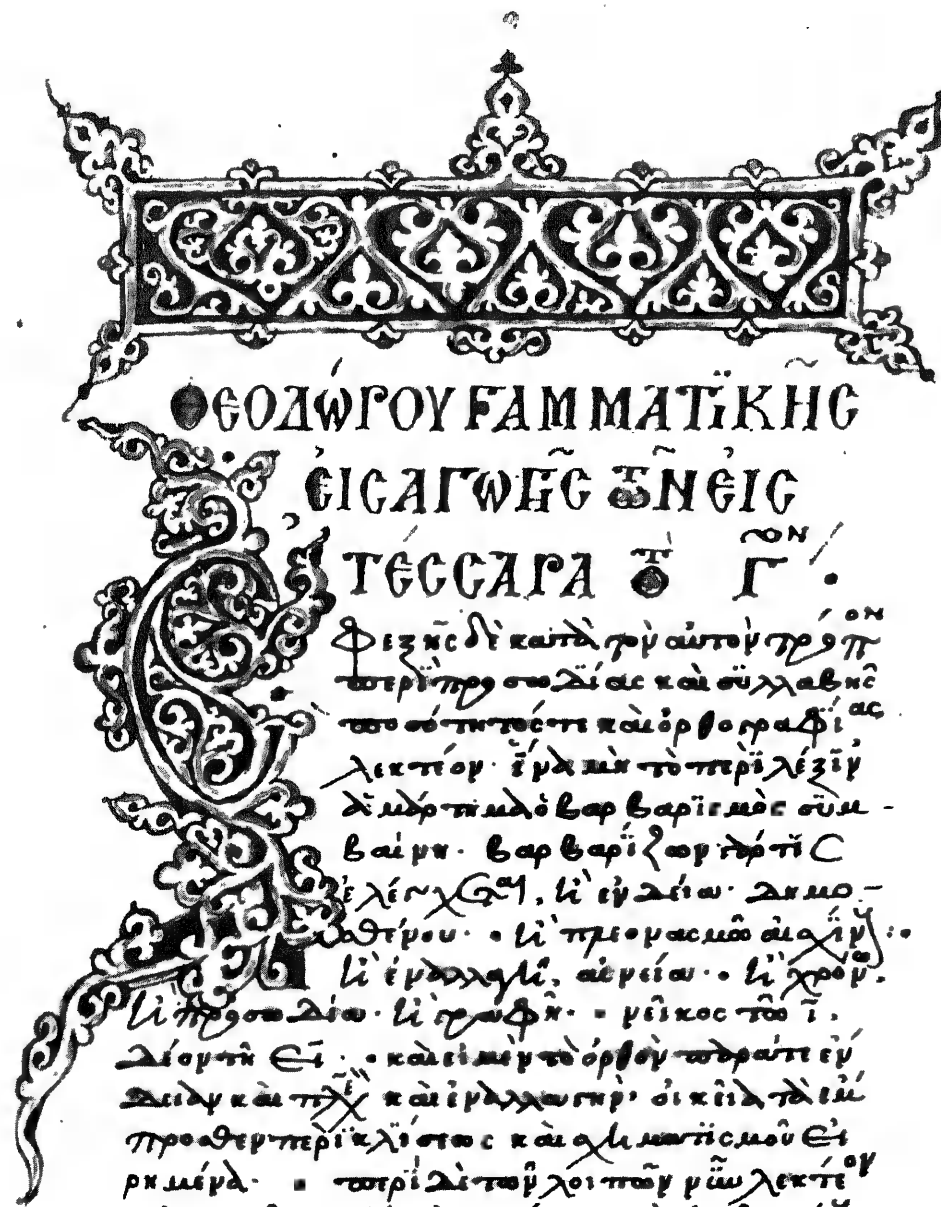 ΘΕΟΔΏΡΟΥ ΓΑΜΜΑΤΙΚΗ͂Σ
ἘΙΣΑΓΩΓΗ͂Σ ΤΩ͂Ν ἘΙΣ
ΤΈΣΣΑΡΑ ΤῸ ΓΟΝ
φεξῆς δὲ κατὰ τὸν αὐτὸν τρόπον
περὶ προσωδίας καὶ συλλαβῆς
ποσότητός τε καὶ ὀρθογραφίας
λεκτέον· ἵνα μὴ τὸ περὶ λέξιν
ἁμάρτημα ὁ βαρβαρισμὸς συμ-
βαίνη· βαρβαρίζων γάρ τις
ἐλέγχεται, ἢ ἐνδείω· δημο-
σθένου· ἢ πλεονασμῶ
ἢ ἐναλλαγῆ, ἢ χρόνω·
ἢ προσωδίω· ἢ γραφῆ· νεῖκος τοῦ ῑ.
δέον τῆ ει· καὶ εἰ μὲν τὸ ὀρθὸν ὁρᾶτε ἐν
δειαν καὶ καὶ ἐναλλαγὴν· οἰκεῖα τὰ ἐμ
προσθεν περὶ κλίσεως καὶ σχηματισμοῦ εἰ
ρημένα· περὶ δὲ τῶν λοιπῶν νῦν λεκτέον